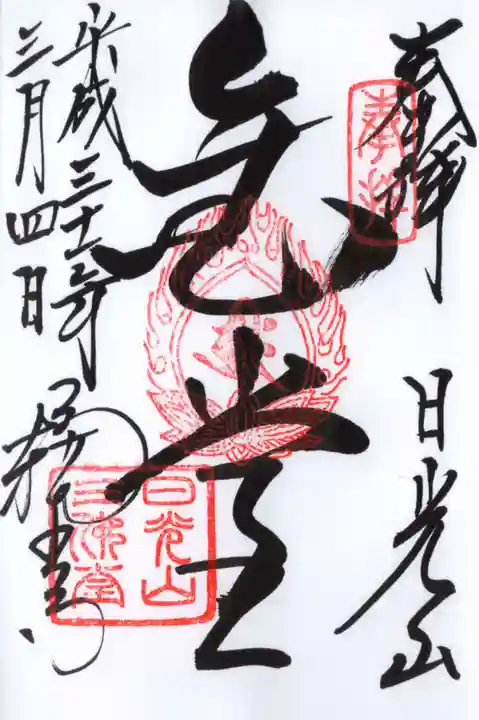 奉拝
日光山
奉拝
金堂
平成三十一年
三月四日
輪王寺
日光山
三佛堂